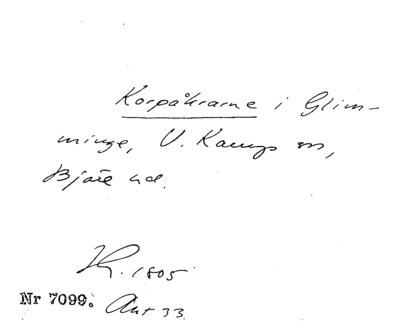 Korpåkrarne i Glim-
minge, V. Karups sn,
Bjäre hd.
1805
Nr 7099. Ant 33